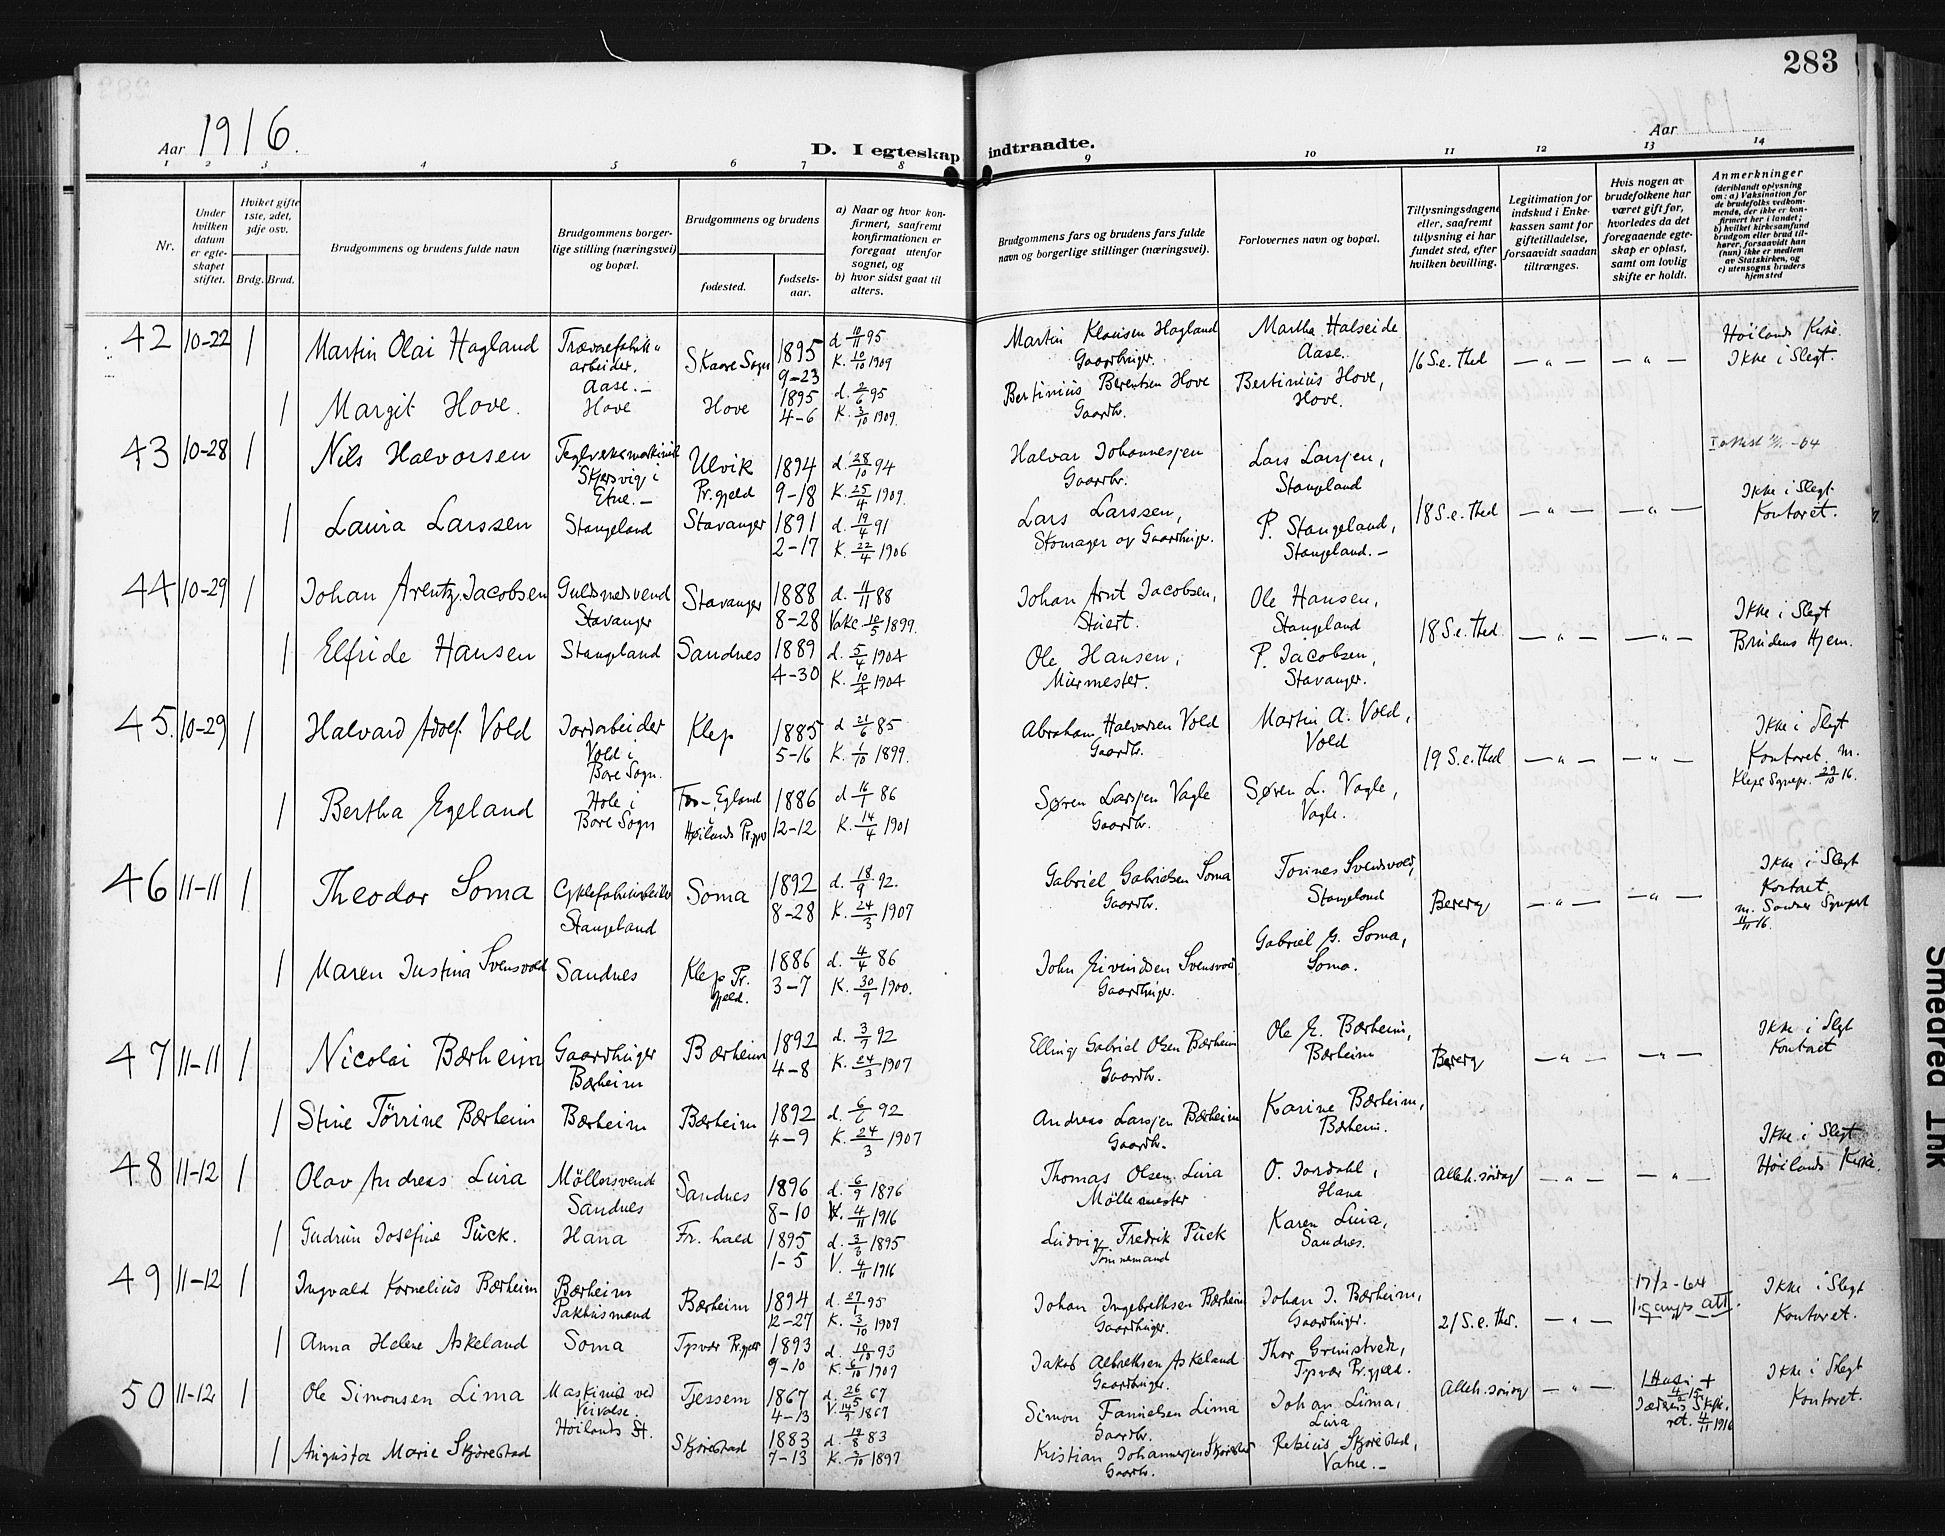 283
Aar 1916.
D. I egteskap indtraadte.
Aar
1 2 3 4 5 6 7 8 9 10 11 12 13 14
Nr.
Under hvilken datum er egteskapet stiftet.
Hvilket gifte 1ste, 2det, 3dje osv.
Brdg. Brud.
Brudgommens og brudens fulde navn
Brudgommens borgerlige stilling (næringsvei) og bopæl.
Brudgommens og brudens
fødested.
fødselsaar.
a) Naar og hvor konfirmert, saafremt konfirmationen er foregaat utenfor sognet, og
b) hvor sidst gaat til alters.
Brudgommens fars og brudens fars fulde navn og borgerlige stillinger (næringsvei).
Forlovernes navn og bopæl.
Tillysningsdagene eller, saafremt tillysning ei har fundet sted, efter hvilken bevilling.
Legitimation for indskud i Enkekassen samt for giftetilladelse, forsaavidt saadan tiltrænges.
Hvis nogen av brudefolkene har været gift før, hvorledes da det foregaaende egteskap er opløst, samt om lovlig skifte er holdt.
Anmerkninger
(deriblandt oplysning om: a) Vaksination for de brudefolks vedkommende, der ikke er konfirmert her i landet; b) hvilket kirkesamfund brudgom eller brud tilhører, forsaavidt han (hun) ikke er medlem av Statskirken, og c) utensogns bruders hjemsted
42 10-22 1 Martin Olai Hagland
arbeider. Aase. —
Skaare Sogn 1895 9-23
d. 10/11 95 K. 10/10 1909
Martin Klausen Hagland Gaardbruger.
Martha Halseide Aase.
16 S.e. Tred — „ — — „ —
Höilands Kirke. Ikke i Slegt.
1 Margit Hove. Hove Hove 1895 4-6
d. 2/6 95 K. 3/10 1909.
Bertinius Berentsen Hove Gaardb.
Bertinius Hove, Hove.
43 10-28 1 Nils Halvorsen
Skjersvig i Etne. —
Ulvik Pr.gjeld 1894 9-18
d. 28/10 94 K. 25/4 1909.
Halvar Johannesjen Gaardbr.
Lars Larsjen, Stangeland
18 S.e. Tred — „ — — „ —
Ikke i Slegt. Kontoret.
1 Laura Larssen Stangeland Stavanger 1891 2-17
d. 19/4 91 K. 22/4 1906
Lars Larssen, og Gaardbruger.
P. Stangeland, Stangeland. —
44 10-29 1 Johan Arentz Jacobsen
Guldsmedsvend Stavanger
Stavanger 1888 8-28
d. 4/11 88 Vakc. 10/5 1899.
Johan Arnt Jacobsen,
Ole Hansen, Stangeland
18 S.e. Tred. — „ — — „ —
Ikke i Slegt Brudens Hjem.
1 Elfride Hansen Stangland Sandnes 1889 4-30
d. 5/4 1904 K. 10/4 1904
Ole Hansen, Murmester.
P. Jacobsen, Stavanger.
45. 10-29 1 Halvard Adolf Vold
Jordarbeider Vold i Bore Sogn.
Klep 1885 5-16
d 21/6 85 K. 1/10 1899.
Abraham Halvorsen Vold Gaardb.
Martin A. Vold, Vold
19 S.e. Tred — „ — — „ —
Ikke i Slegt Kontoret. m. Kleps Sognepr. 29/10 16.
1 Bertha Egeland Hole i Bore Sogn
Höilands Pr.gjeld 1886 12-12
d 16/1 86 K. 14/4 1901
Søren Larsjen Vagle Gaardb.
Søren L. Vagle, Vagle.
46 11-11 1 Theodor Soma
Stangeland
Soma 1892 8-28
d. 18/9 92. K. 24/3 1907
Gabriel Gabrielsen Soma Gaardb.
Svensvold, Stangeland
— „ — — „ —
Ikke i Slegt Kontoret. 11/11 16.
1 Maren Justina Svensvold Sandnes Klep Pr. gjeld. 1886 3-7
d. 4/4 86 K. 30/9 1900.
John Eivindsen Svensvold Gaardbruger.
Gabriel G. Soma, Soma.
47 11-11 1 Nicolai Bærheim
Gaardbruger Bærheim
Bærheim 1892 4-8
d. 3/7 92 K. 24/3 1907
Elling Gabriel Olsen Bærheim Gaardb.
Ole E. Bærheim, Bærheim
— „ — — „ —
Ikke i Slegt Kontoret
1 Stine Törrine Bærheim Bærheim Bærheim 1892 4-9
d. 6/6 92 K. 24/3 1907
Andreas Larsjen Bærheim Gaardb.
Karine Bærheim, Bærheim.
48 11-12 1 Olav Andreas Lura
Möllersvend Sandnes
Sandnes 1896 8-10
d. 6/9 1896 4/11 1916
Thomas Olsen Lura Möllemester
O. Jordahl, Hana
Alleh.söndag — „ — — „ —
Ikke i Slegt Höilands Kirke.
1 Gudrun Josefine Pück. Hana Fr. hald 1895 1-5
d. 3/3 1895 V. 4/11 1916
Ludvig Fredrik Pück Tömmermand
Karen Lura, Sandnes.
49 11-12 1 Ingvald Kornelius Bærheim
Bærheim Pakhusmand
Bærheim 1894 12-27
d. 27/1 95 K. 3/10 1909
Johan Ingebrethsen Bærheim Gaardbruger.
Johan J. Bærheim, Gaardbruger.
21 S.e. Tred. — „ —
17/2-64
Ikke i Slegt Kontoret.
1 Anna Helene Askeland Soma Tysvær Pr.gjeld 1893 9-10
d. 10/10 93 K. 6/10 1909
Jakob Albrethsen Askeland Gaardbruger.
Tysvær Pr.gjeld.
50 11-12 1 Ole Simonsen Lima
Maskinist ved Höilands St.
Tjessem 1867 4-13
d. 26/5 67
Simon Lima Gaardbr.
Johan Lima, Lura
Alleh. söndag — „ —
Ikke i Slegt Kontoret.
1 Augusta Marie Skjörestad Skjörestad 1883 7-13
d. 19/8 83 K. 3/10 1897
Kristian Johannesjen Skjörestad Gaardb.
Skjörestad, Vatne. —
Smedred Trk